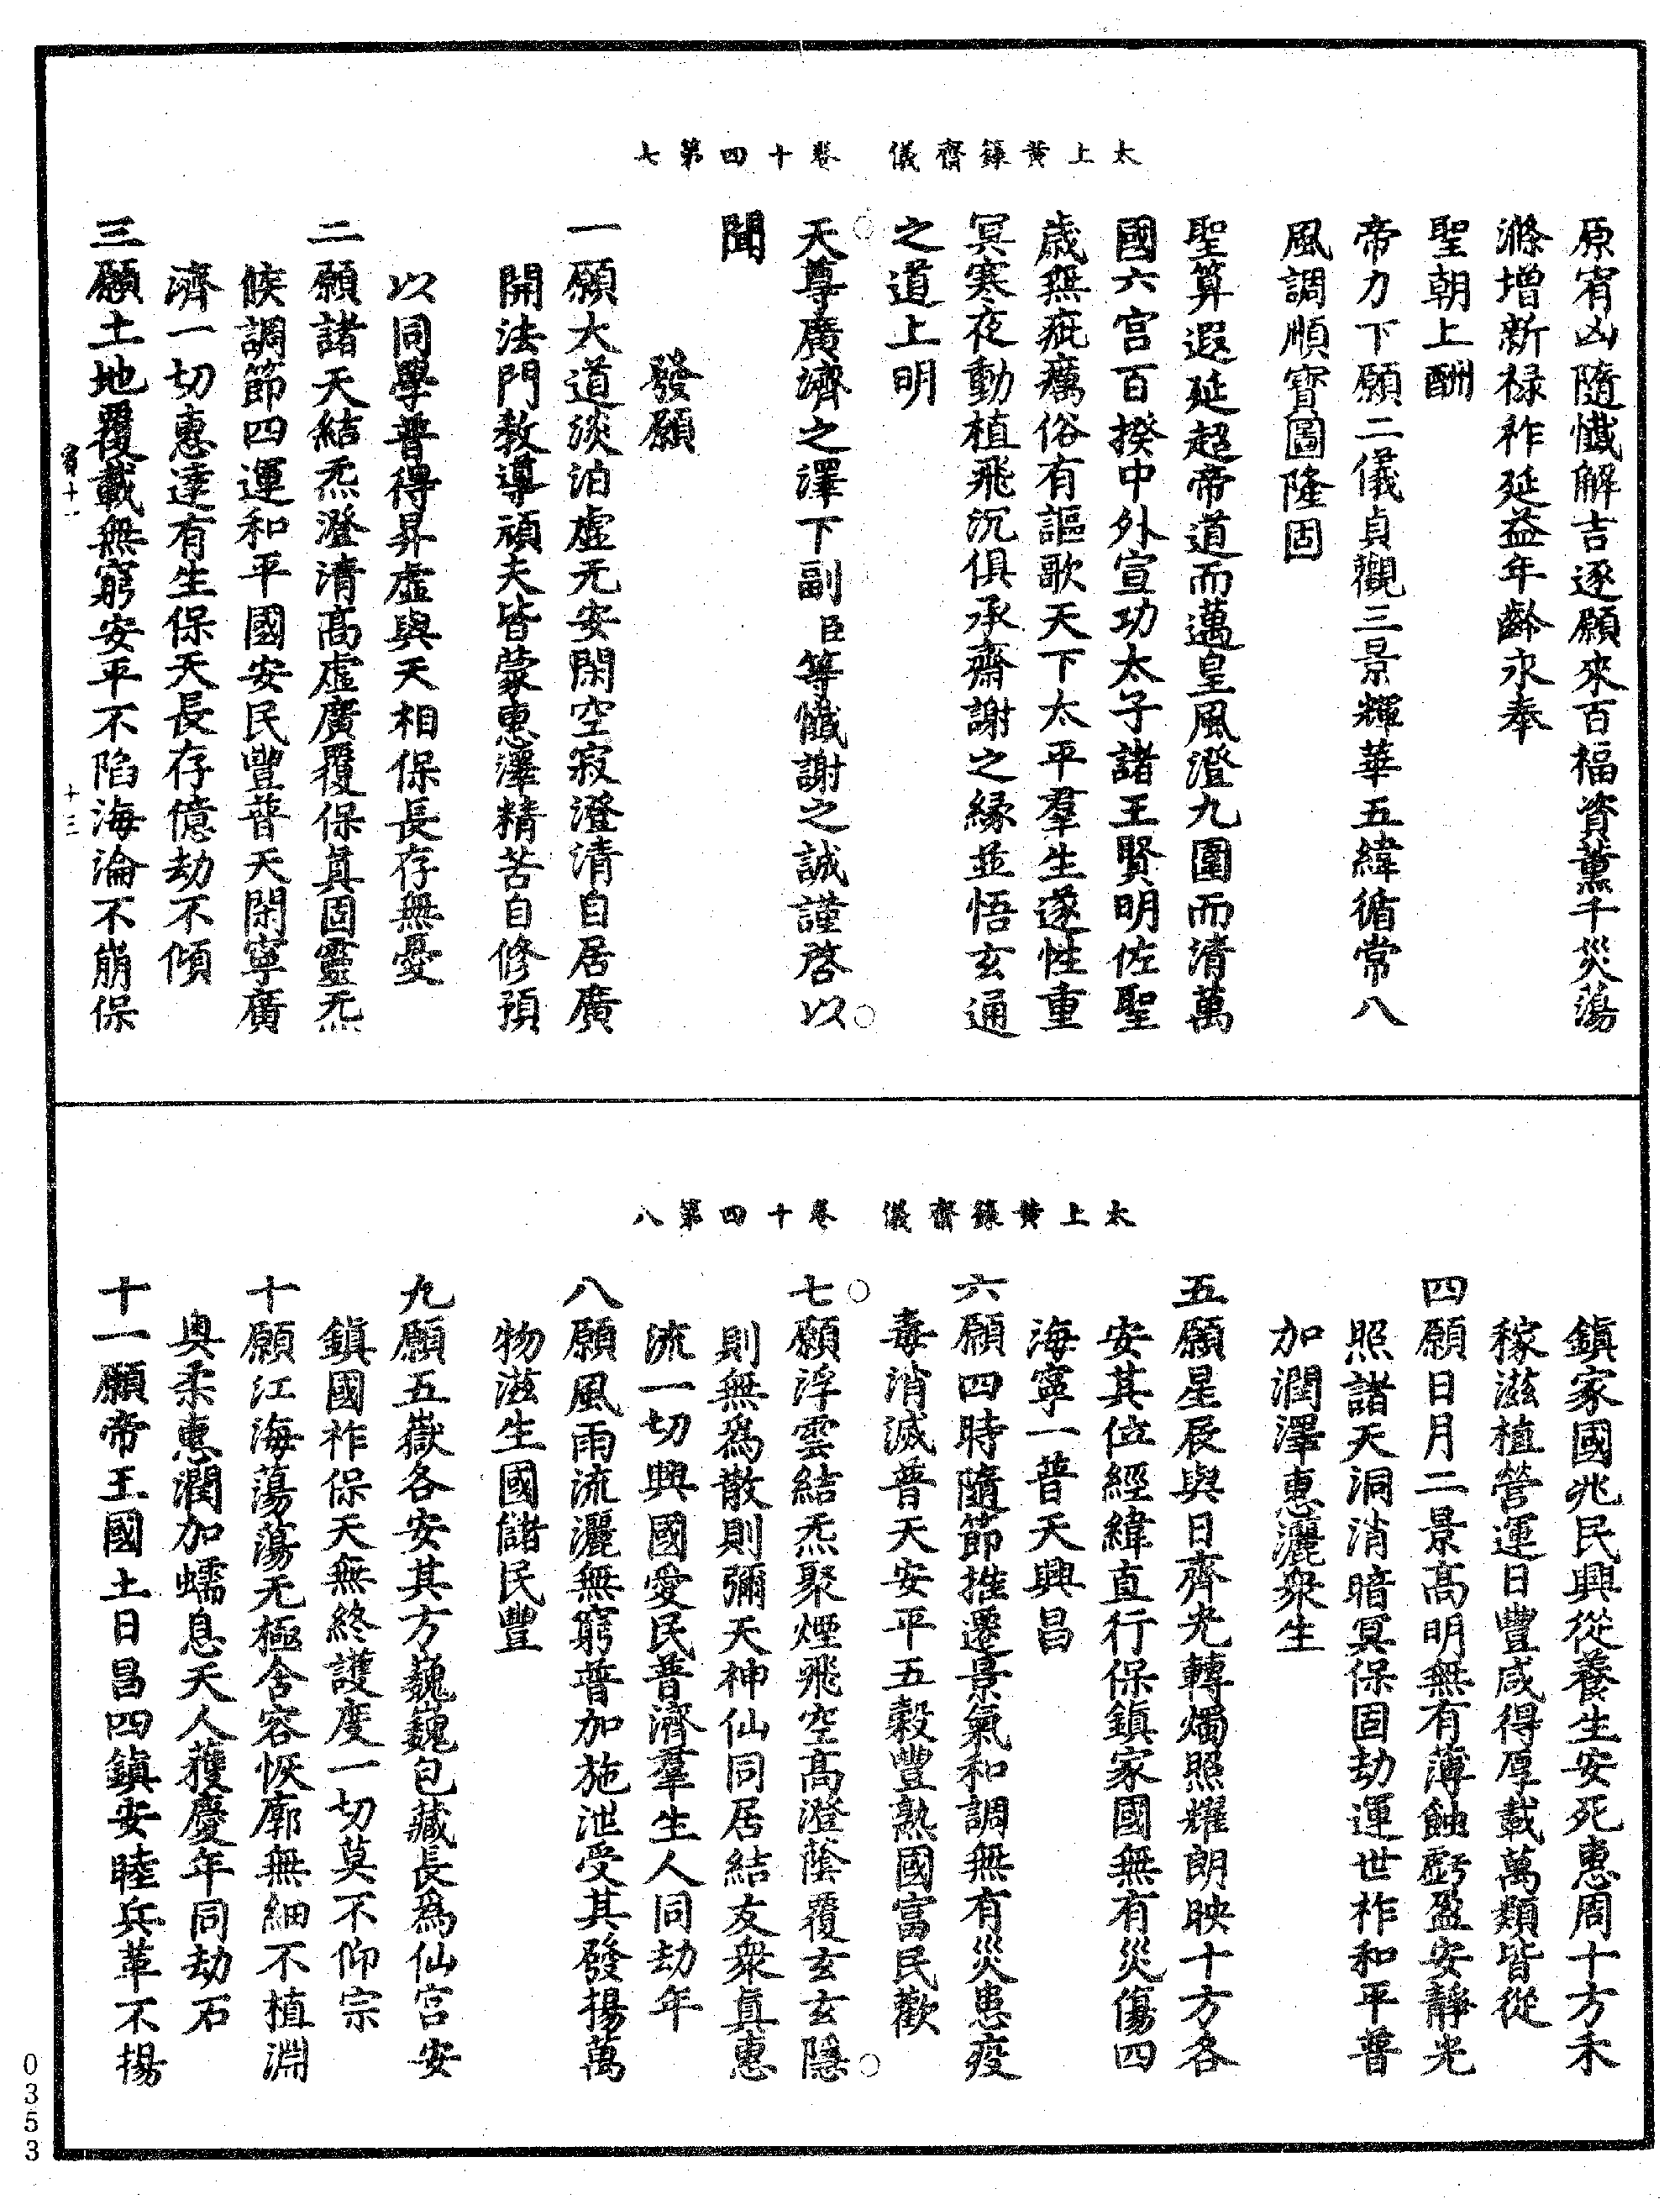 太上黃籙齋儀　卷十四第七
原宥凶隨懺解吉逐願來百福資薰千災蕩
滌增新祿祚延益年齡永奉
聖朝上酬
帝力下願二儀貞觀三景輝華五緯循常八
風調順寶圖隆固
聖算遐延超帝道而邁皇風澄九圍而清萬
國六宮百揆中外宣功太子諸王賢明佐聖
歲無疵癘俗有謳歌天下太平羣生遂性重
冥寒夜動植飛沉俱承齋謝之緣並悟玄通
之道上明
天尊廣濟之澤下副臣等懺謝之誠謹啓以
聞
發願
一願大道淡泊虛无安閑空寂澄清自居廣
開法門教導頑夫皆蒙惠澤精苦自修預
以同學普得昇虛與天相保長存無憂
二願諸天結炁澄清高虛廣覆保真固靈炁
候調節四運和平國安民豐普天閑寧廣
濟一切惠達有生保天長存億劫不傾
三願土地覆載無窮安平不陷海淪不崩保
賓十一
十三
太上黃籙齋儀　卷十四第八
鎮家國兆民興從養生安死惠周十方禾
稼滋植營運日豐咸得厚載萬類皆從
四願日月二景高明無有薄蝕虧盈安靜光
照諸天洞消暗冥保固劫運世祚和平普
加潤澤惠灑衆生
五願星辰與日齊光轉燭照耀朗映十方各
安其位經緯直行保鎮家國無有災傷四
海寧一普天興昌
六願四時隨節推遷景氣和調無有災患疫
毒消滅普天安平五穀豐熟國富民歡
七願浮雲結炁聚煙飛空高澄蔭覆玄玄隱
則無為散則彌天神仙同居結友衆真惠
流一切興國愛民普濟羣生人同劫年
八願風雨流灑無窮普加施泄受其發揚萬
物滋生國儲民豐
九願五嶽各安其方巍巍包藏長為仙宮安
鎮國祚保天無終護度一切莫不仰宗
十願江海蕩蕩无極含容恢廓無細不植淵
奧柔惠潤加蠕息天人獲慶年同劫石
十一願帝王國土日昌四鎮安睦兵革不揚
0353